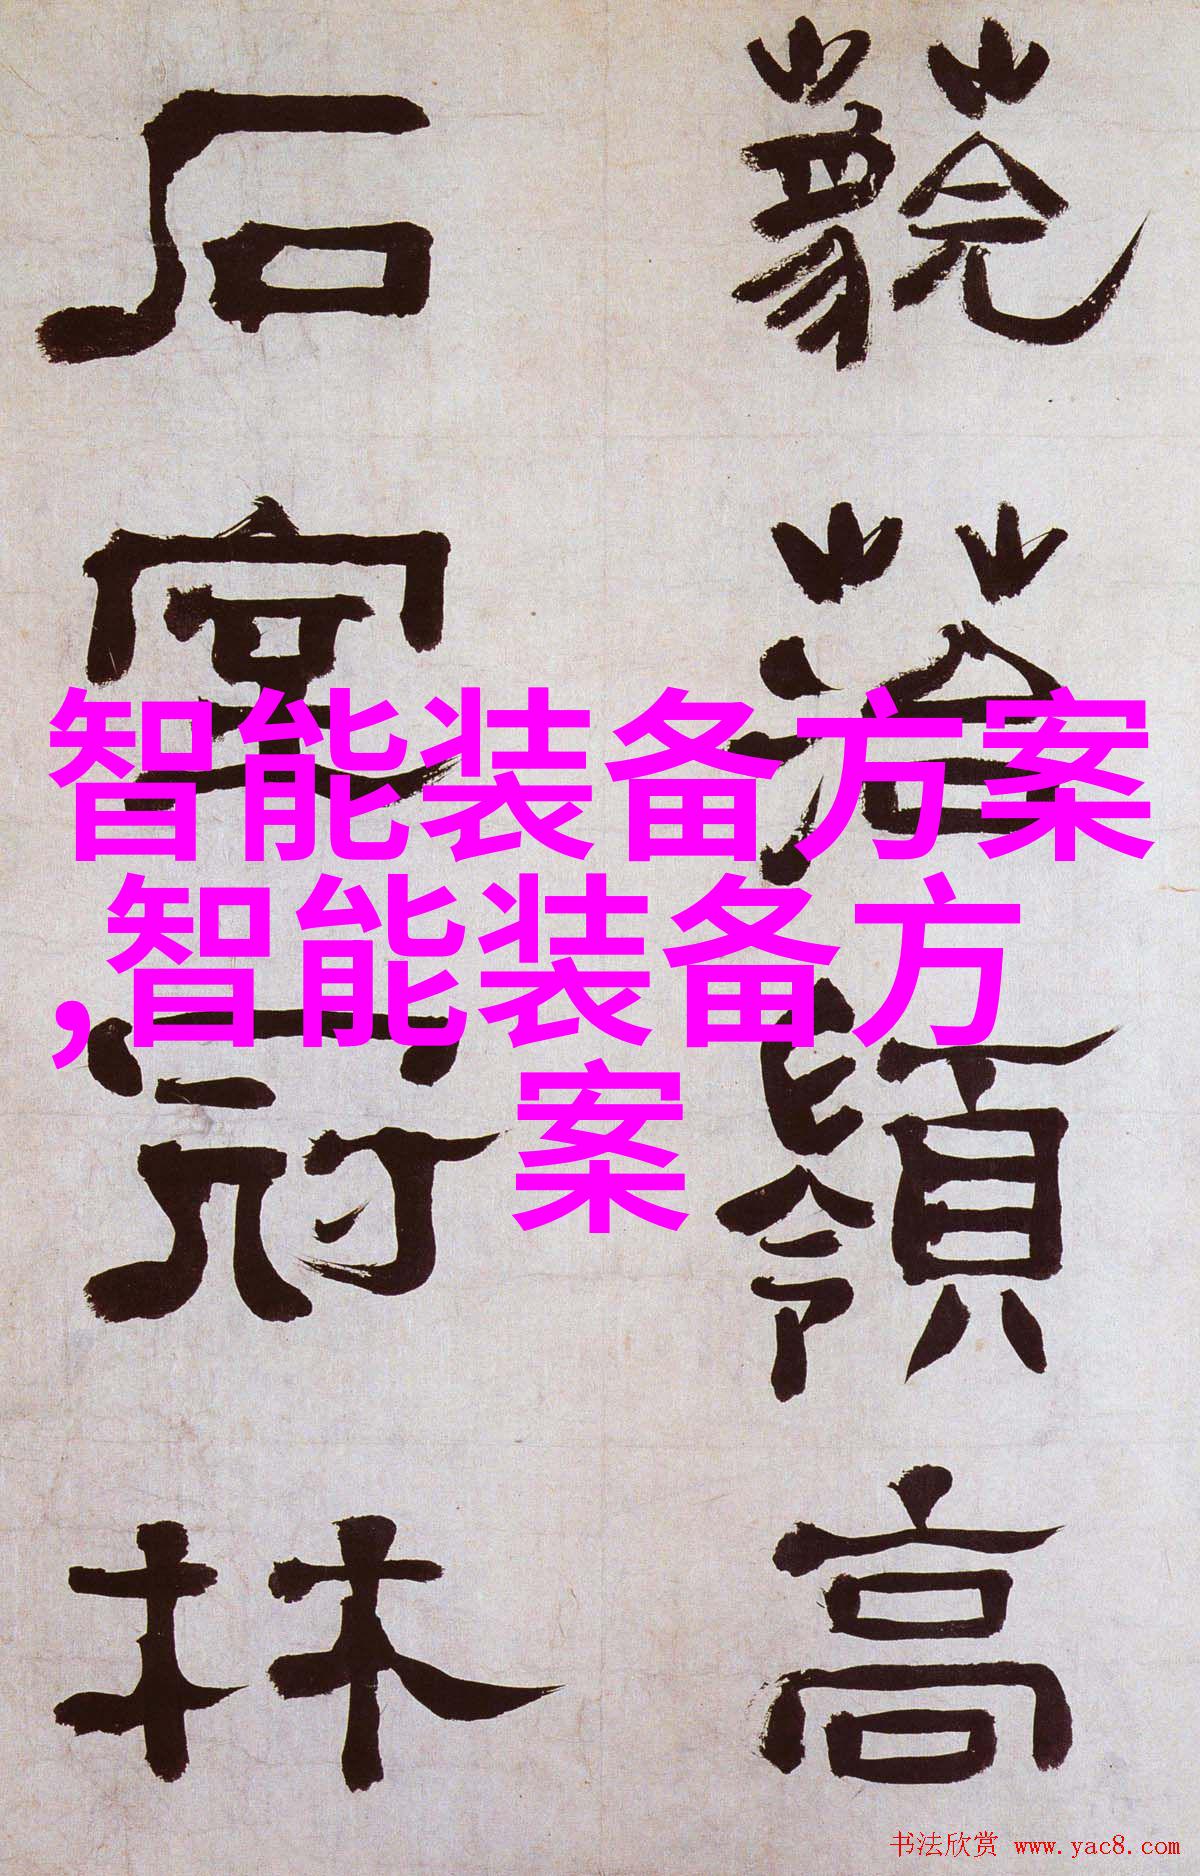 藐落嶺高
石室冠林
智能装备方案
,智能装备方
案
书法欣赏 www.yac8.com